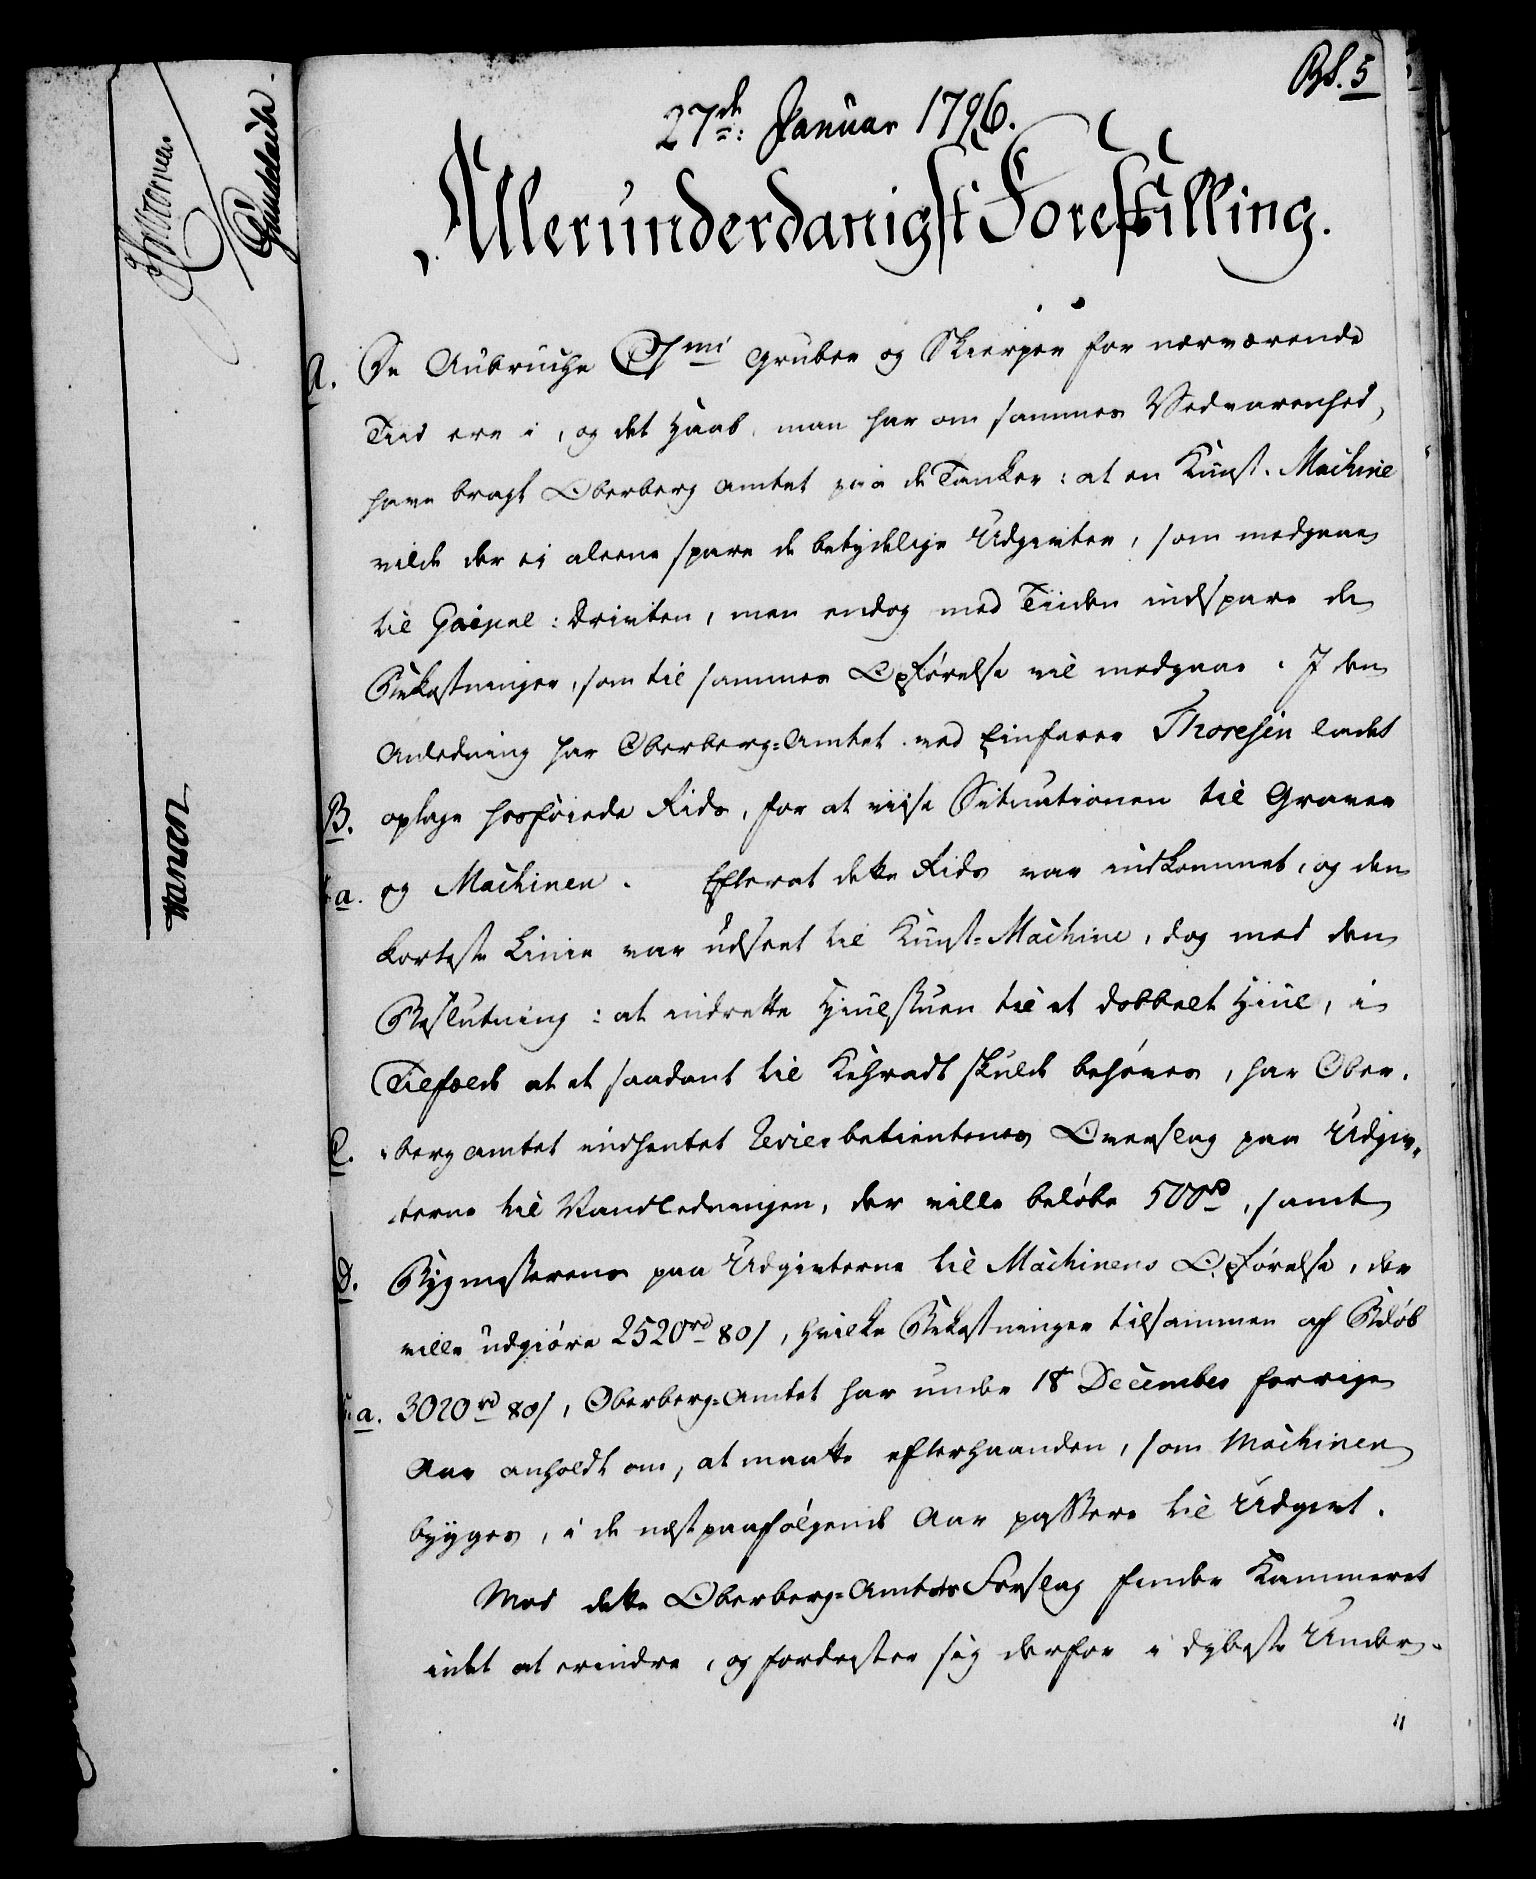 Bl. 5
27de: Januar 1796.
Allerunderdanigst Forestilling.
A. De Anbruche Gruber og Skierper for nærværende
Tiid ere i, og det Haab, man har om sammes Vedvarenhed,
have bragt Oberberg Amtet paa de Tanker: at en Kunst-Machine
vilde der ei aleene spare de betydelige Udgivter, som medgaae
til Gaipel: Driuten, men endog med Tiiden indspare de
Bekostninger, som til sammes Opførelse vil medgaae. I den
Anledning har Oberberg-Amtet ved Einfarer Thoresen ladet
B. optage hosføiede Rids, for at viise Situationen til Graver
a. og Machinen. Efterat dette Rids var indkommet, og den
korteste Linie var udseet til Kunst-Machine, dog med den
Beslutning: at indrette Hiulstuen til et dobbelt Hiul, i
Tilfælde at et saadant til Kehradt skulde behøves, har Ober-
C. berg amtet indhentet Revierbetienternes Overslag paa Udgiv-
terne til Vandledningen, der ville beløbe 500rd, samt
D. Bygmesterens paa Udgivterne til Machinens Opførelse, der
ville udgiøre 2520rd 80s, hvilke Bekostninger tilsammen af Beløb
a. 3020rd 80s, Oberberg-Amtet har under 18 December forrige
Aar anholdt om, at maatte efterhaanden, som Machinen
bygges, i de næstpaafølgende Aar passere til Udgivt.
Mod dette Oberberg-Amtets Forslag finder Kammeret
intet at erindre, og fordrister sig derfor i dybeste Under-
Hansen